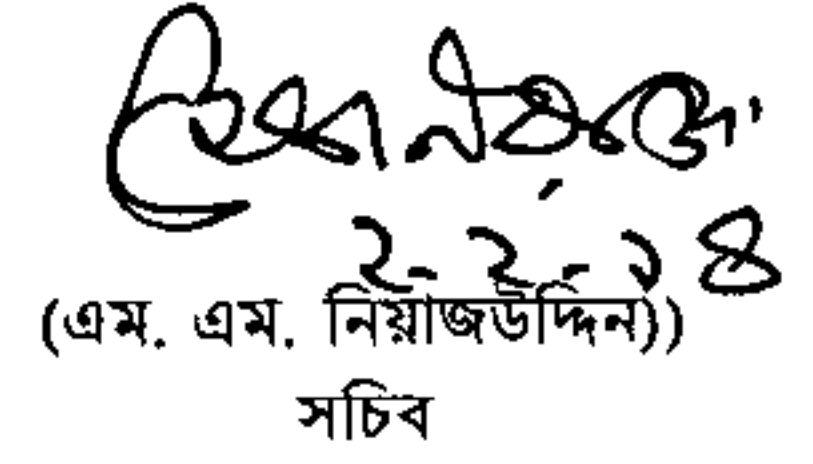 ২-২-১৪
(এম. এম. নিয়াজউদ্দিন))
সচিব